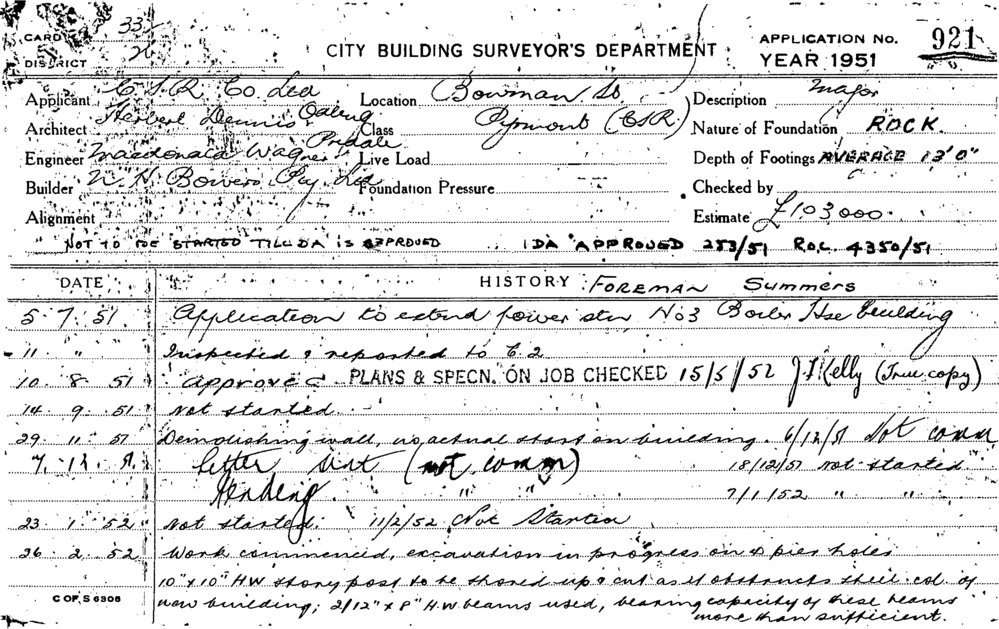 CARD 33
DISTRICT 2
CITY BUILDING SURVEYOR'S DEPARTMENT
APPLICATION No. 921
YEAR 1951
Applicant C.S.R. Co. Ltd Location Bowman St Description Major
Architect Herbert Dennis Class Pyrmont (CSR.) Nature of Foundation ROCK.
Engineer Macdonald Wagner Priddle Live Load Depth of Footings AVERAGE 13'0"
Builder N. H. Bowers Pty Ltd Foundation Pressure Checked by
Alignment Estimate £103000.
NOT TO BE STARTED TILL DA IS APPROVED IDA APPROVED 253/51 R.O.C. 4350/51
DATE HISTORY FOREMAN Summers
5 . 7 . 51 Application to extend power stn No3 Boiler Hse building
11 " Inspected & reported to C.2
10 . 8 . 51 Approved PLANS & SPECN. ON JOB CHECKED 15/5/52 J Kelly (True copy)
14 . 9 . 51 Not started
29 . 11 . 51 Demolishing wall, no actual start on building. 6/12/51 Not comm
7 . 12 . 51 Letter sent (not comm) 18/12/51 Not started
" " 7/1/52 " "
23 . 1 . 52 Not started. 11/2/52 Not Started
26 . 2 . 52 Work commenced, excavation in progress on pier holes
10" x 10" HW storey post to be shored up & cut as it obstructs steel col. of
new building; 2/12" x 8" H.W beams used, bearing capacity of these beams
more than sufficient.
C OF S 6306